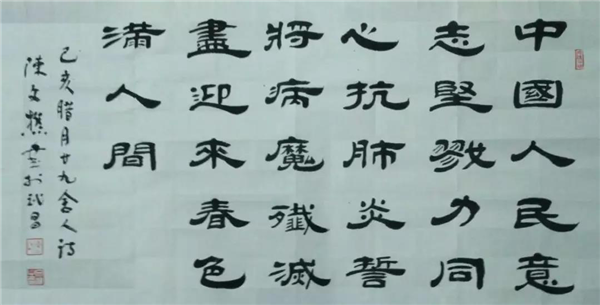 中國人民意
志堅戮力同
心抗肺炎誓
将病魔殲滅
盡迎來春色
滿人間
己亥腊月廿九舍人詩
陳文樵書於武昌